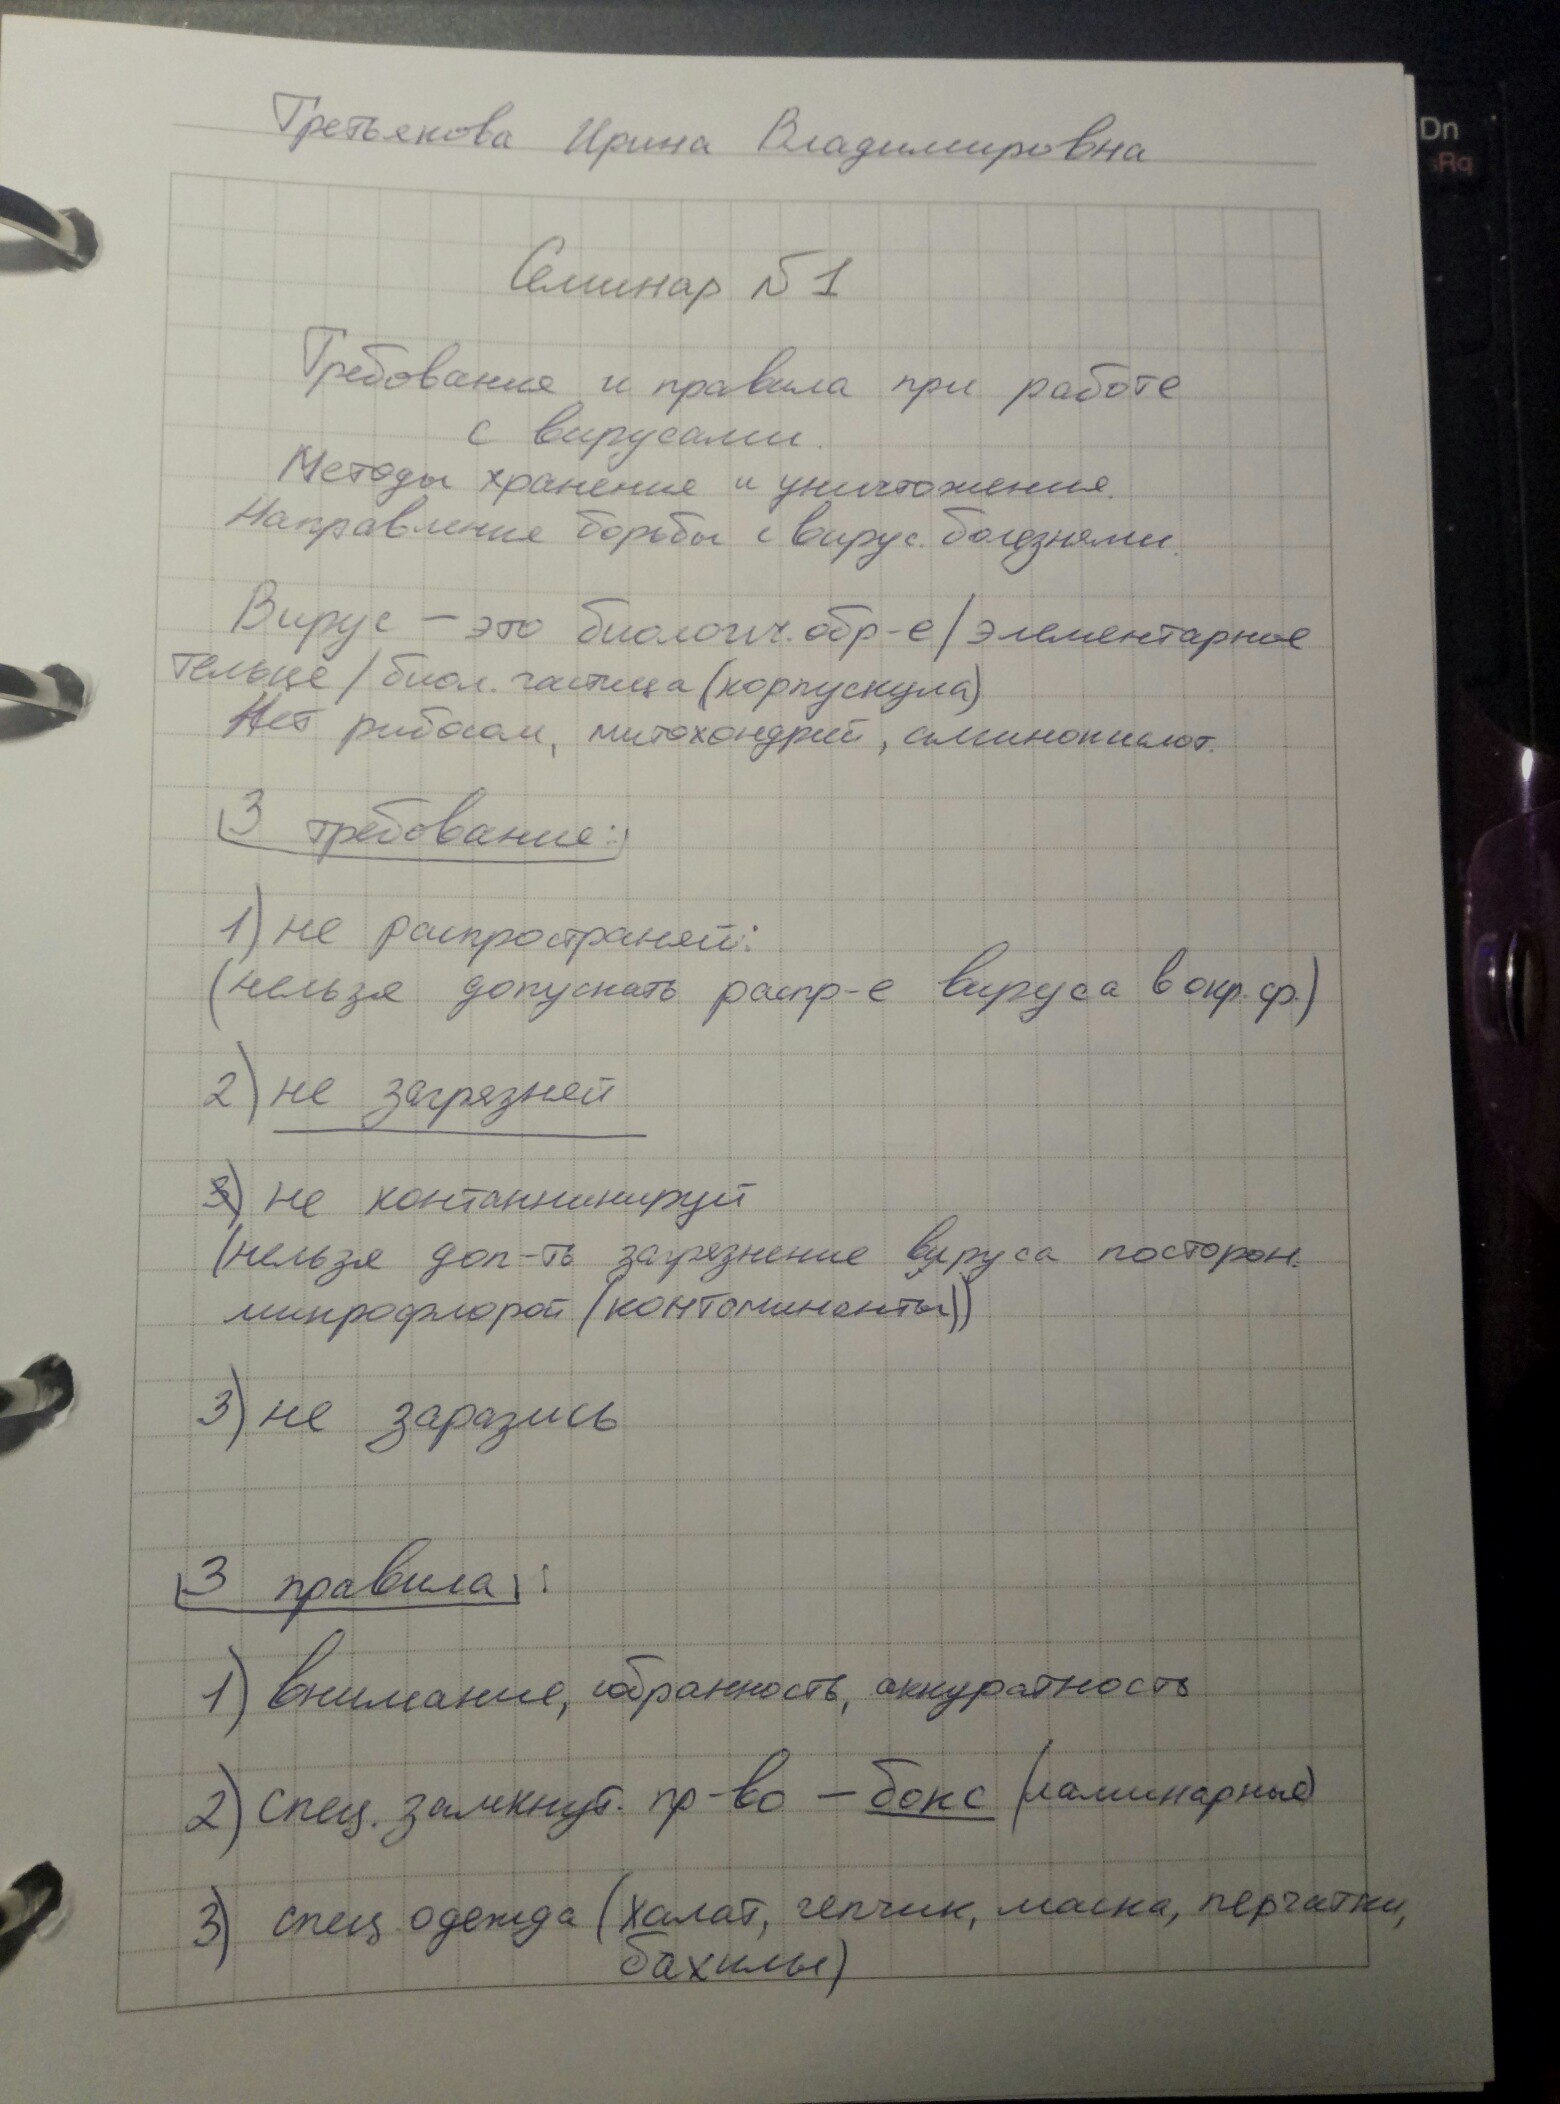 Третьякова Ирина Владимировна
Семинар №1
Требования и правила при работе
с вирусами.
Методы хранения и уничтожения.
Направление борьбы с вирус. болезнями.
Вирус – это биологич. обр-е / элементарное
тельце / биол. частица (корпускула)
Нет рибосом, митохондрий, аминокислот.
3 требования:
1) не распространяй:
(нельзя допускать распр-е вируса в окр. ср.)
2) не загрязняй
3) не контаминируй
(нельзя доп-ть загрязнение вируса посторон.
микрофлорой (контаминанты))
3) не заразись
3 правила:
1) внимание, собранность, аккуратность
2) спец. замкнут. пр-во – бокс (ламинарные)
3) спец. одежда (халат, чепчик, маска, перчатки,
бахилы)
Dn
Rq